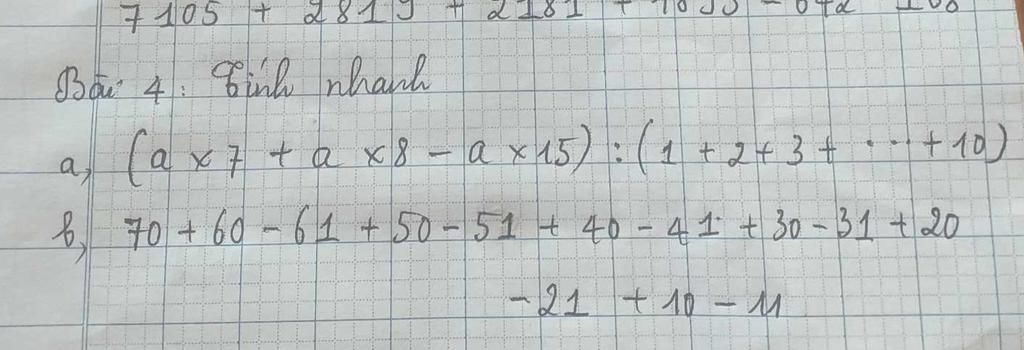 7105 + 2819 + 2181 +
Bài 4: Tính nhanh
a, (a x 7 + a x 8 - a x 15) : (1 + 2 + 3 + ... + 10)
b, 70 + 60 - 61 + 50 - 51 + 40 - 41 + 30 - 31 + 20
- 21 + 10 - 11